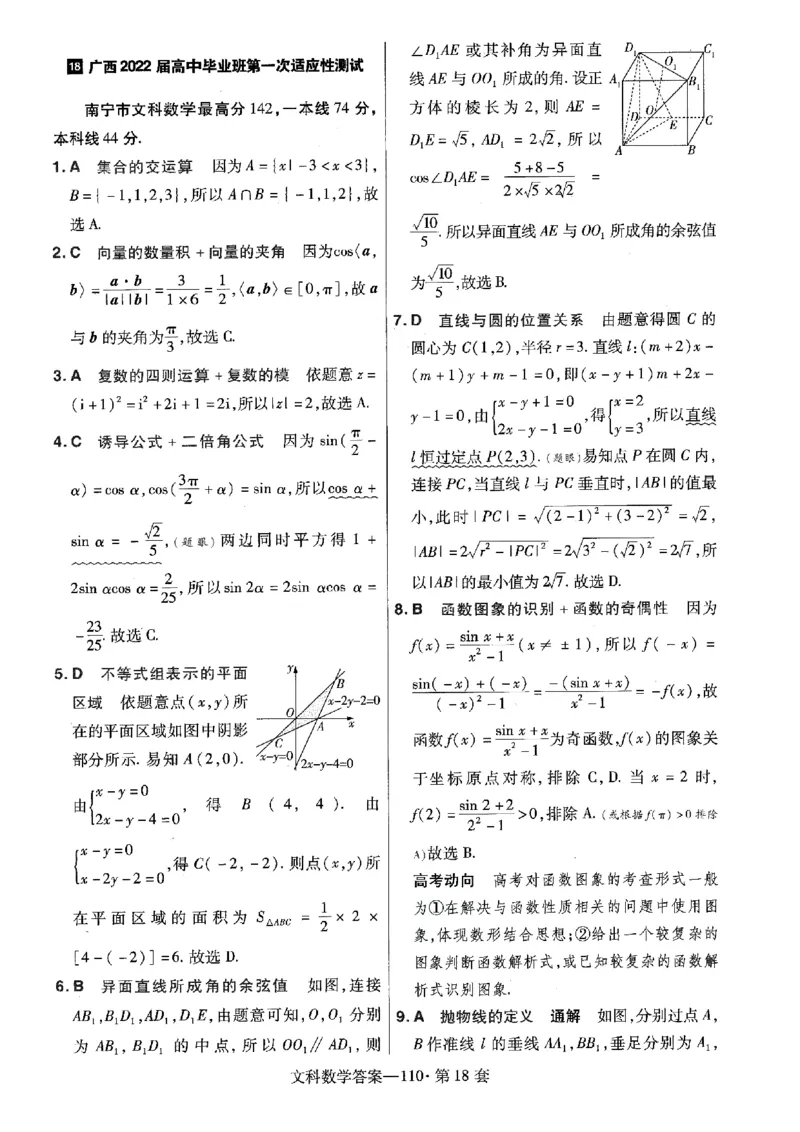 18 广西2022届高中毕业班第一次适应性测试
南宁市文科数学最高分142,一本线74分,
本科线44分.
1.A 集合的交运算 因为A={x|-3<x<3},
B={-1,1,2,3},所以A∩B={-1,1,2},故
选A.
2.C 向量的数量积+向量的夹角 因为cos⟨a,
b⟩=a·b/|a||b|=3/1×6=1/2,⟨a,b⟩∈[0,π],故a
与b的夹角为π/3,故选C.
3.A 复数的四则运算+复数的模 依题意z=
(i+1)²=i²+2i+1=2i,所以|z|=2,故选A.
4.C 诱导公式+二倍角公式 因为sin(π/2-
α)=cos α,cos(3π/2+α)=sin α,所以cos α+
sin α=-√2/5,(题眼)两边同时平方得1+
2sin αcos α=2/25,所以sin 2α=2sin αcos α=
-23/25.故选C.
5.D 不等式组表示的平面
区域 依题意点(x,y)所
在的平面区域如图中阴影
部分所示.易知A(2,0).
y
B
x-2y-2=0
O
A
x
C
x-y=0
2x-y-4=0
由{x-y=0
2x-y-4=0, 得 B(4,4). 由
{x-y=0
x-2y-2=0,得C(-2,-2).则点(x,y)所
在平面区域的面积为S△ABC=1/2×2×
[4-(-2)]=6.故选D.
6.B 异面直线所成角的余弦值 如图,连接
AB₁,B₁D₁,AD₁,D₁E,由题意可知,O,O₁分别
为AB₁,B₁D₁的中点,所以OO₁∥AD₁,则
∠D₁AE或其补角为异面直
线AE与OO₁所成的角.设正
方体的棱长为2,则AE=
D₁E=√5,AD₁=2√2,所以
D₁
C₁
O₁
A₁
B₁
D
O
E
C
A
B
cos∠D₁AE=5+8-5/2×√5×2√2=
√10/5.所以异面直线AE与OO₁所成角的余弦值
为√10/5,故选B.
7.D 直线与圆的位置关系 由题意得圆C的
圆心为C(1,2),半径r=3.直线l:(m+2)x-
(m+1)y+m-1=0,即(x-y+1)m+2x-
y-1=0,由{x-y+1=0
2x-y-1=0,得{x=2
y=3,所以直线
l恒过定点P(2,3).(题眼)易知点P在圆C内,
连接PC,当直线l与PC垂直时,|AB|的值最
小,此时|PC|=√(2-1)²+(3-2)²=√2,
|AB|=2√r²-|PC|²=2√3²-(√2)²=2√7,所
以|AB|的最小值为2√7.故选D.
8.B 函数图象的识别+函数的奇偶性 因为
f(x)=sin x+x/x²-1(x≠±1),所以f(-x)=
sin(-x)+(-x)/(-x)²-1=-(sin x+x)/x²-1=-f(x),故
函数f(x)=sin x+x/x²-1为奇函数,f(x)的图象关
于坐标原点对称,排除C,D.当x=2时,
f(2)=sin 2+2/2²-1>0,排除A.(或根据f(π)>0排除
A)故选B.
高考动向 高考对函数图象的考查形式一般
为①在解决与函数性质相关的问题中使用图
象,体现数形结合思想;②给出一个较复杂的
图象判断函数解析式,或已知较复杂的函数解
析式识别图象.
9.A 抛物线的定义 通解 如图,分别过点A,
B作准线l的垂线AA₁,BB₁,垂足分别为A₁,
文科数学答案—110·第18套